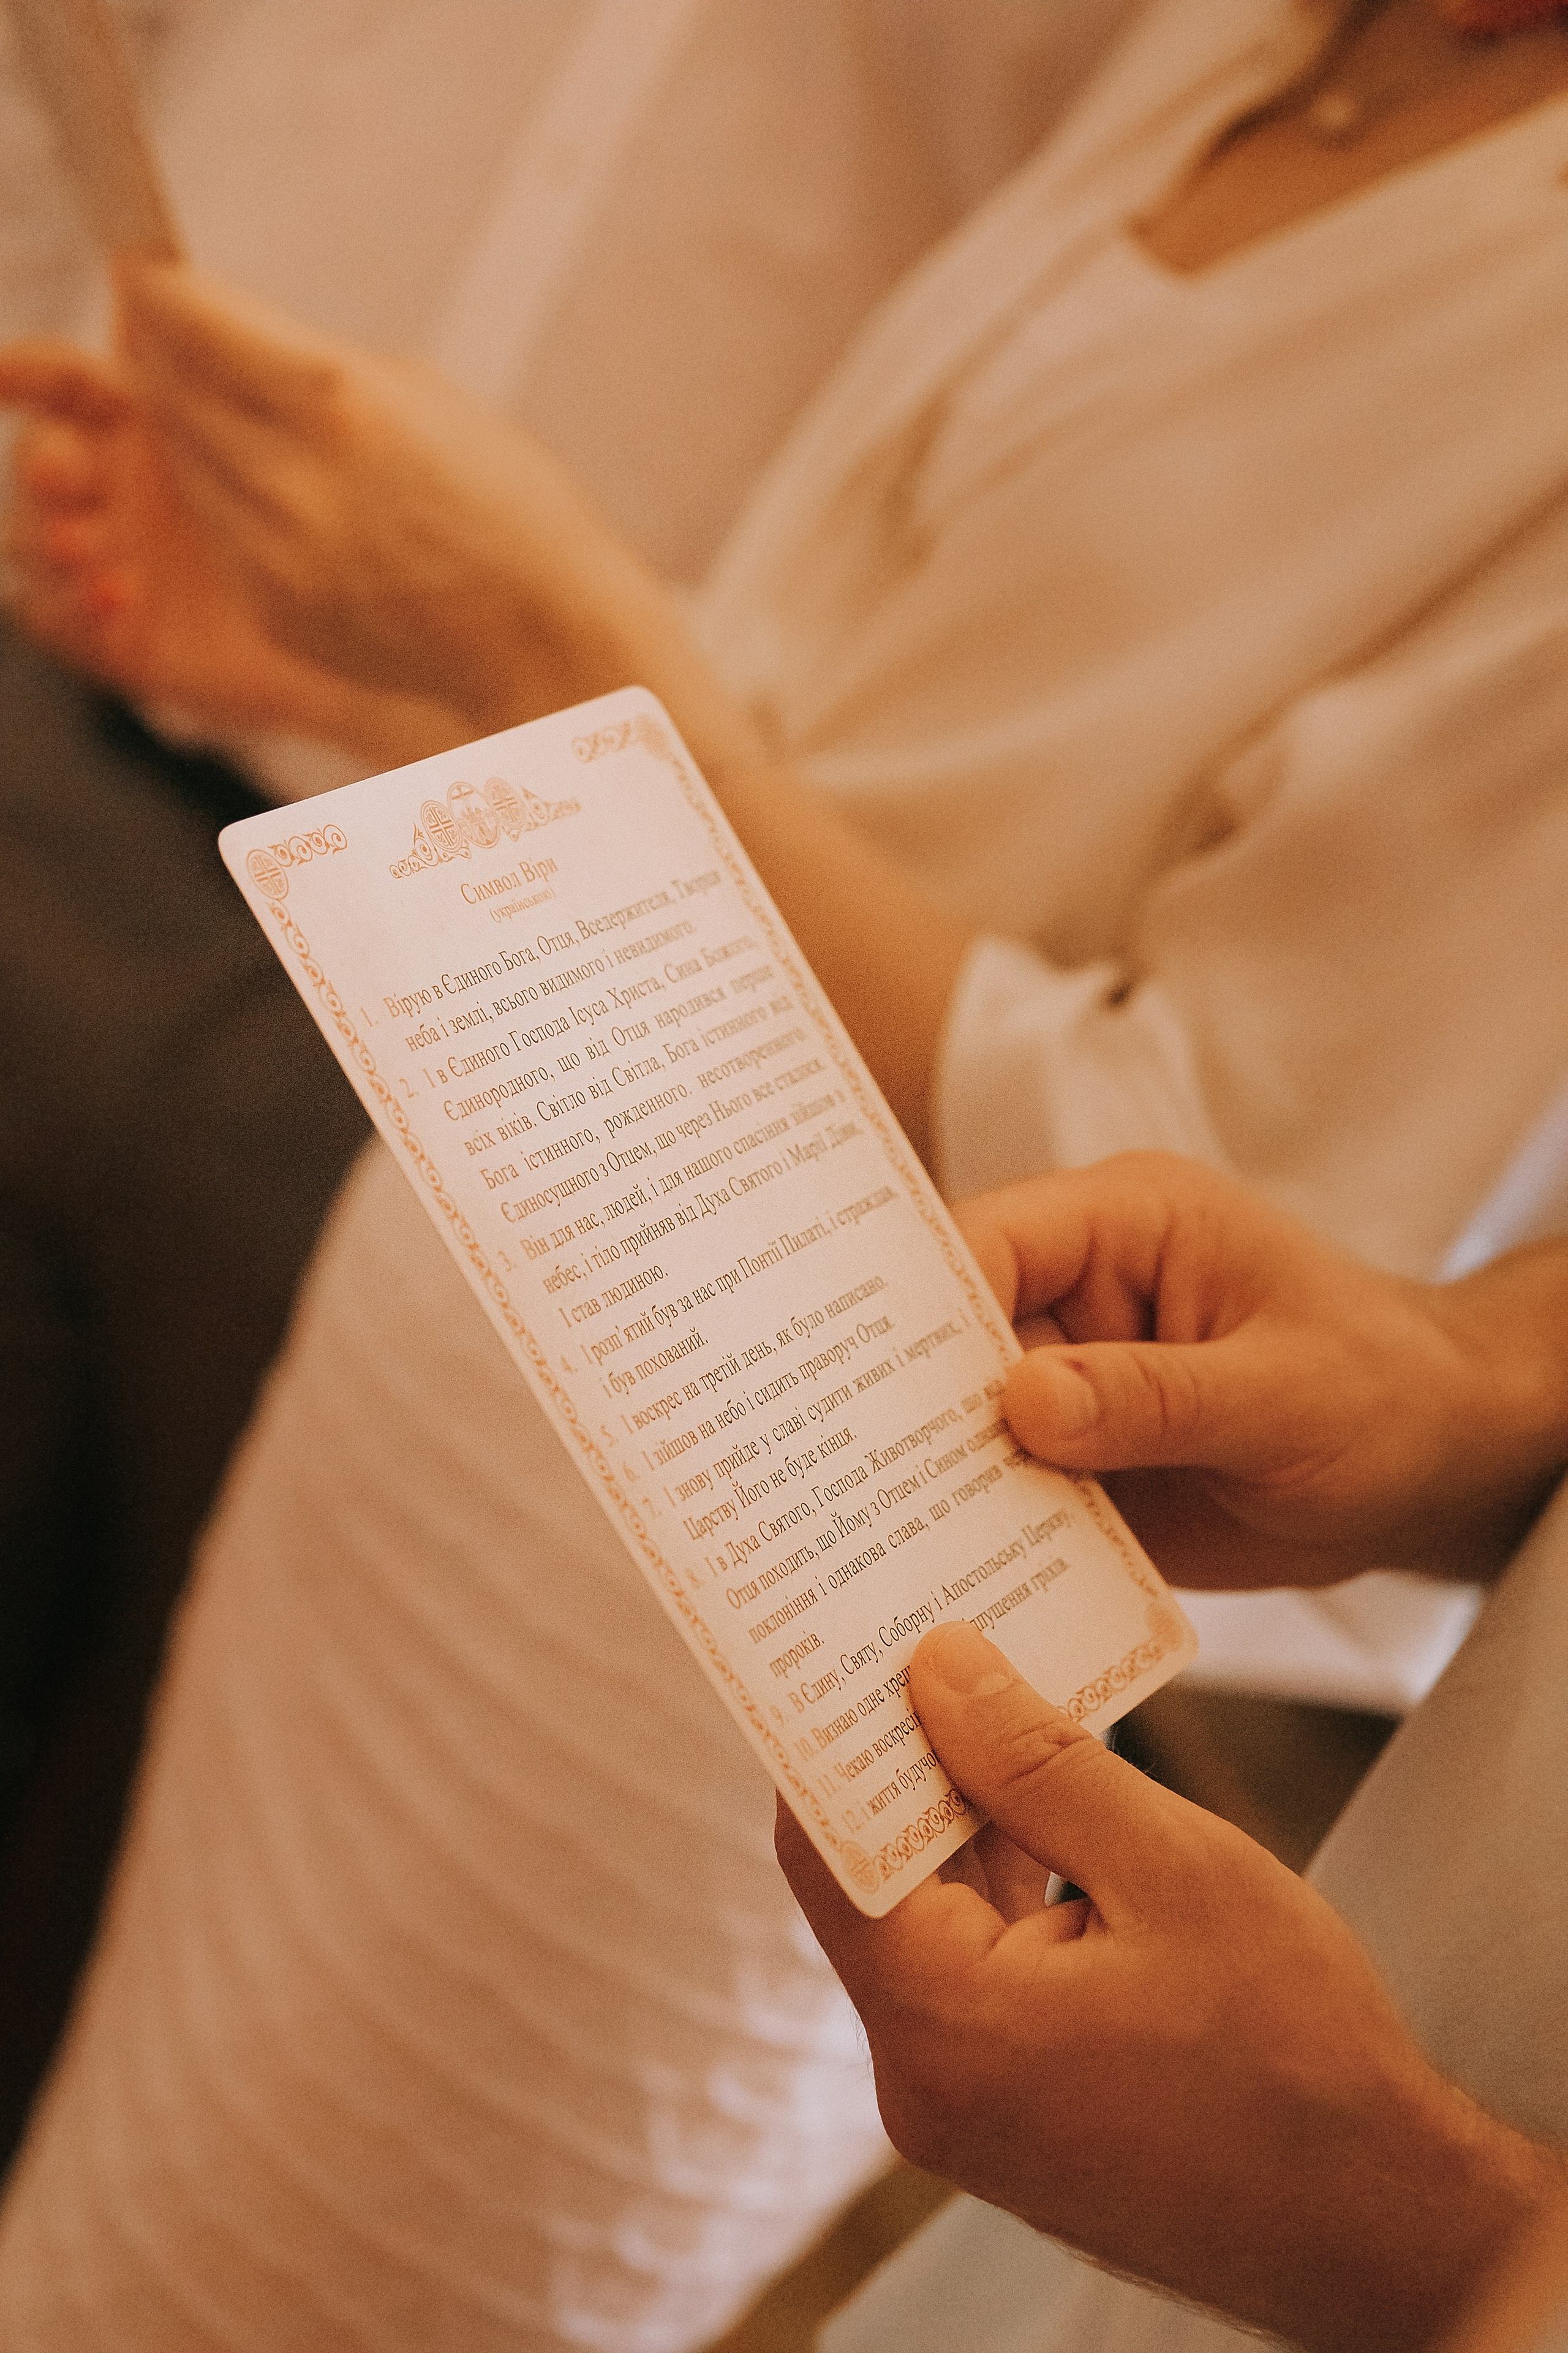 Символ Віри
(українською)
1. Вірую в Єдиного Бога, Отця, Вседержителя, Творця
неба і землі, всього видимого і невидимого.
2. І в Єдиного Господа Ісуса Христа, Сина Божого,
Єдинородного, що від Отця народився перше
всіх віків. Світло від Світла, Бога істинного від
Бога істинного, рожденного, несотворенного,
Єдиносущного з Отцем, що через Нього все сталося.
3. Він для нас, людей, і для нашого спасіння зійшов з
небес, і тіло прийняв від Духа Святого і Марії Діви,
І став людиною.
4. І розп'ятий був за нас при Понтії Пилаті, і страждав,
і був похований.
5. І воскрес на третій день, як було написано.
6. І зійшов на небо і сидить праворуч Отця.
7. І знову прийде у славі судити живих і мертвих, і
Царству Його не буде кінця.
8. І в Духа Святого, Господа Животворчого, що від
Отця походить, що Йому з Отцем і Сином
поклоніння і однакова слава, що говорив
пророків.
9. В Єдину, Святу, Соборну і Апостольську Церкву.
10. Визнаю одне гріхів.
11. Чекаю
12. і життя